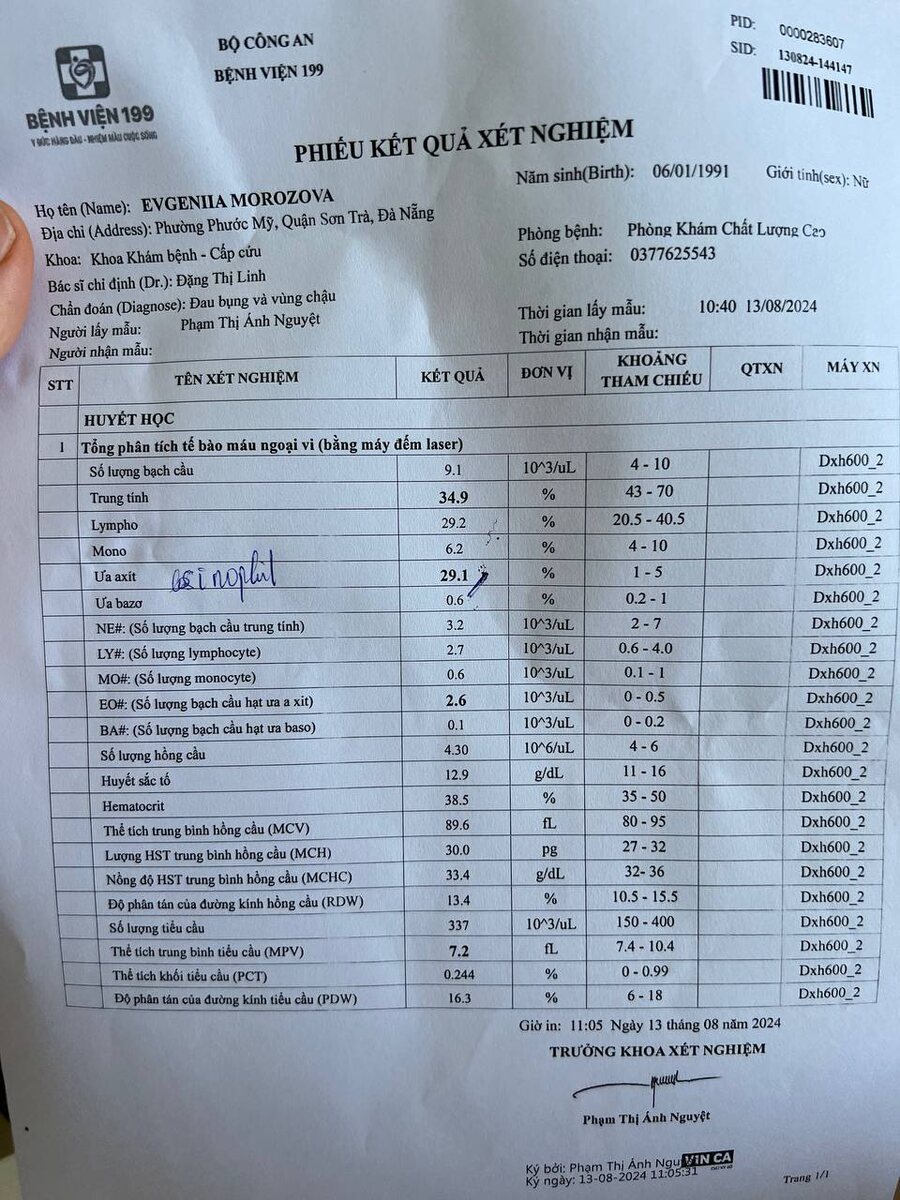 BỆNH VIỆN 199
Y ĐỨC HÀNG ĐẦU - NHIỆM MÀU CUỘC SỐNG
BỘ CÔNG AN
BỆNH VIỆN 199
PID: 0000283607
SID: 130824-144147
PHIẾU KẾT QUẢ XÉT NGHIỆM
Họ tên (Name): EVGENIIA MOROZOVA
Năm sinh(Birth): 06/01/1991 Giới tính(sex): Nữ
Địa chỉ (Address): Phường Phước Mỹ, Quận Sơn Trà, Đà Nẵng
Khoa: Khoa Khám bệnh - Cấp cứu
Phòng bệnh: Phòng Khám Chất Lượng Cao
Bác sĩ chỉ định (Dr.): Đặng Thị Linh
Số điện thoại: 0377625543
Chẩn đoán (Diagnose): Đau bụng và vùng chậu
Người lấy mẫu: Phạm Thị Ánh Nguyệt
Thời gian lấy mẫu: 10:40 13/08/2024
Người nhận mẫu:
Thời gian nhận mẫu:
STT TÊN XÉT NGHIỆM KẾT QUẢ ĐƠN VỊ KHOẢNG THAM CHIẾU QTXN MÁY XN
HUYẾT HỌC
1 Tổng phân tích tế bào máu ngoại vi (bằng máy đếm laser)
Số lượng bạch cầu 9.1 10^3/uL 4 - 10 Dxh600_2
Trung tính 34.9 % 43 - 70 Dxh600_2
Lympho 29.2 % 20.5 - 40.5 Dxh600_2
Mono 6.2 % 4 - 10 Dxh600_2
Ưa axít 29.1 % 1 - 5 Dxh600_2
Ưa bazơ 0.6 % 0.2 - 1 Dxh600_2
NE#: (Số lượng bạch cầu trung tính) 3.2 10^3/uL 2 - 7 Dxh600_2
LY#: (Số lượng lymphocyte) 2.7 10^3/uL 0.6 - 4.0 Dxh600_2
MO#: (Số lượng monocyte) 0.6 10^3/uL 0.1 - 1 Dxh600_2
EO#: (Số lượng bạch cầu hạt ưa a xit) 2.6 10^3/uL 0 - 0.5 Dxh600_2
BA#: (Số lượng bạch cầu hạt ưa baso) 0.1 10^3/uL 0 - 0.2 Dxh600_2
Số lượng hồng cầu 4.30 10^6/uL 4 - 6 Dxh600_2
Huyết sắc tố 12.9 g/dL 11 - 16 Dxh600_2
Hematocrit 38.5 % 35 - 50 Dxh600_2
Thể tích trung bình hồng cầu (MCV) 89.6 fL 80 - 95 Dxh600_2
Lượng HST trung bình hồng cầu (MCH) 30.0 pg 27 - 32 Dxh600_2
Nồng độ HST trung bình hồng cầu (MCHC) 33.4 g/dL 32- 36 Dxh600_2
Độ phân tán của đường kính hồng cầu (RDW) 13.4 % 10.5 - 15.5 Dxh600_2
Số lượng tiểu cầu 337 10^3/uL 150 - 400 Dxh600_2
Thể tích trung bình tiểu cầu (MPV) 7.2 fL 7.4 - 10.4 Dxh600_2
Thể tích khối tiểu cầu (PCT) 0.244 % 0 - 0.99 Dxh600_2
Độ phân tán của đường kính tiểu cầu (PDW) 16.3 % 6 - 18 Dxh600_2
Giờ in: 11:05 Ngày 13 tháng 08 năm 2024
TRƯỞNG KHOA XÉT NGHIỆM
Phạm Thị Ánh Nguyệt
Ký bởi: Phạm Thị Ánh VIN CA
Ký ngày: 13-08-2024 11:05:31
Trang 1/1